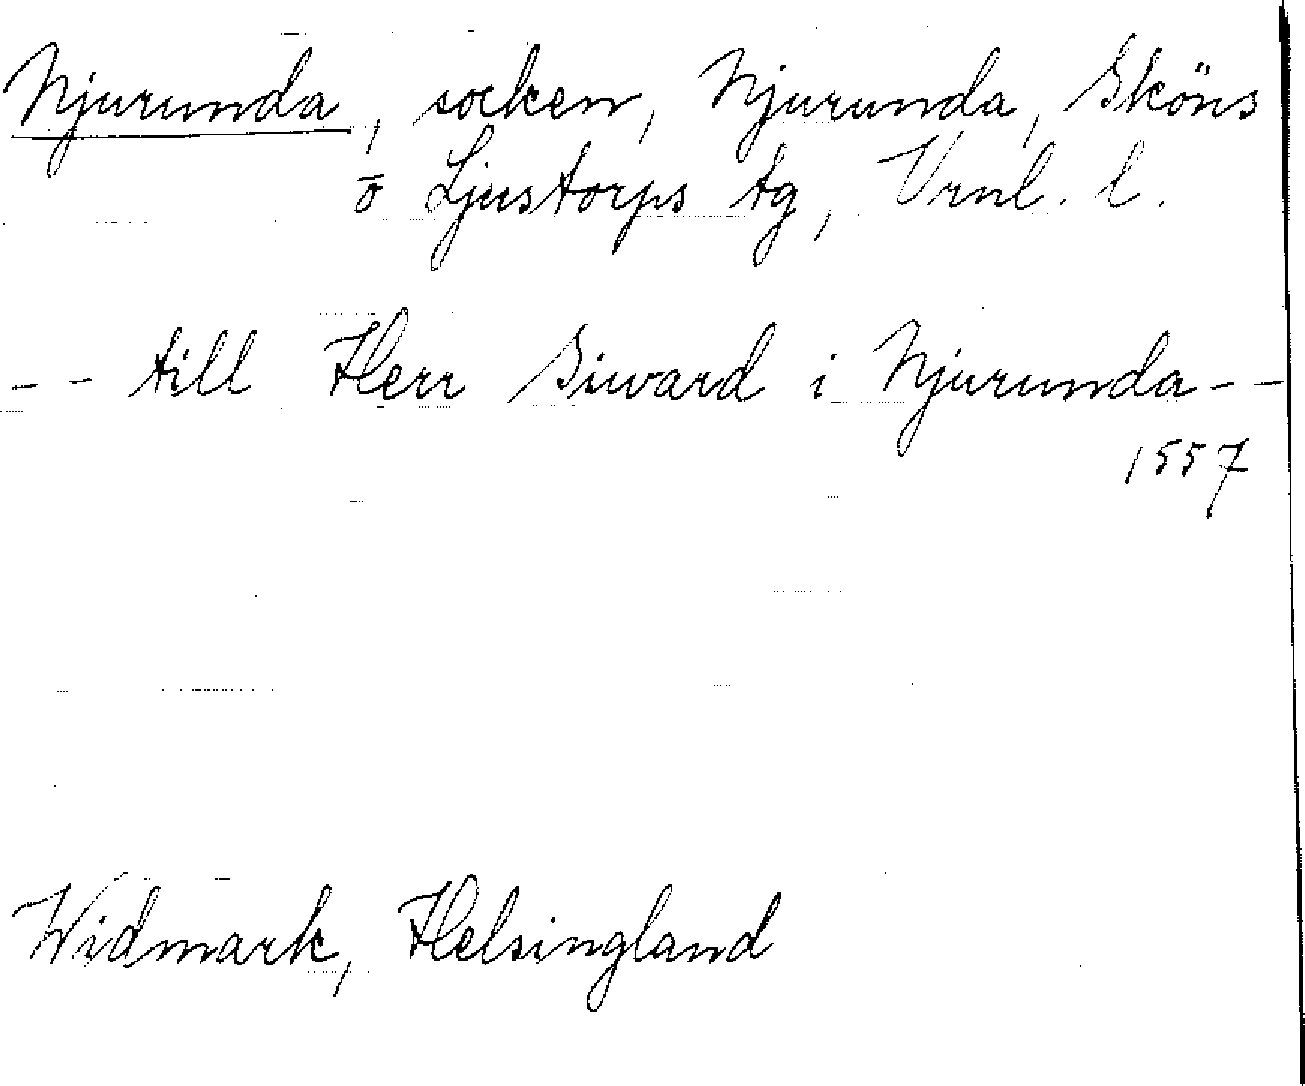 Njurunda, socken, Njurunda, Sköns
o Ljustorps tg, Vrnl. l.
-- till Herr Siward i Njurunda--
1557
Widmark, Helsingland